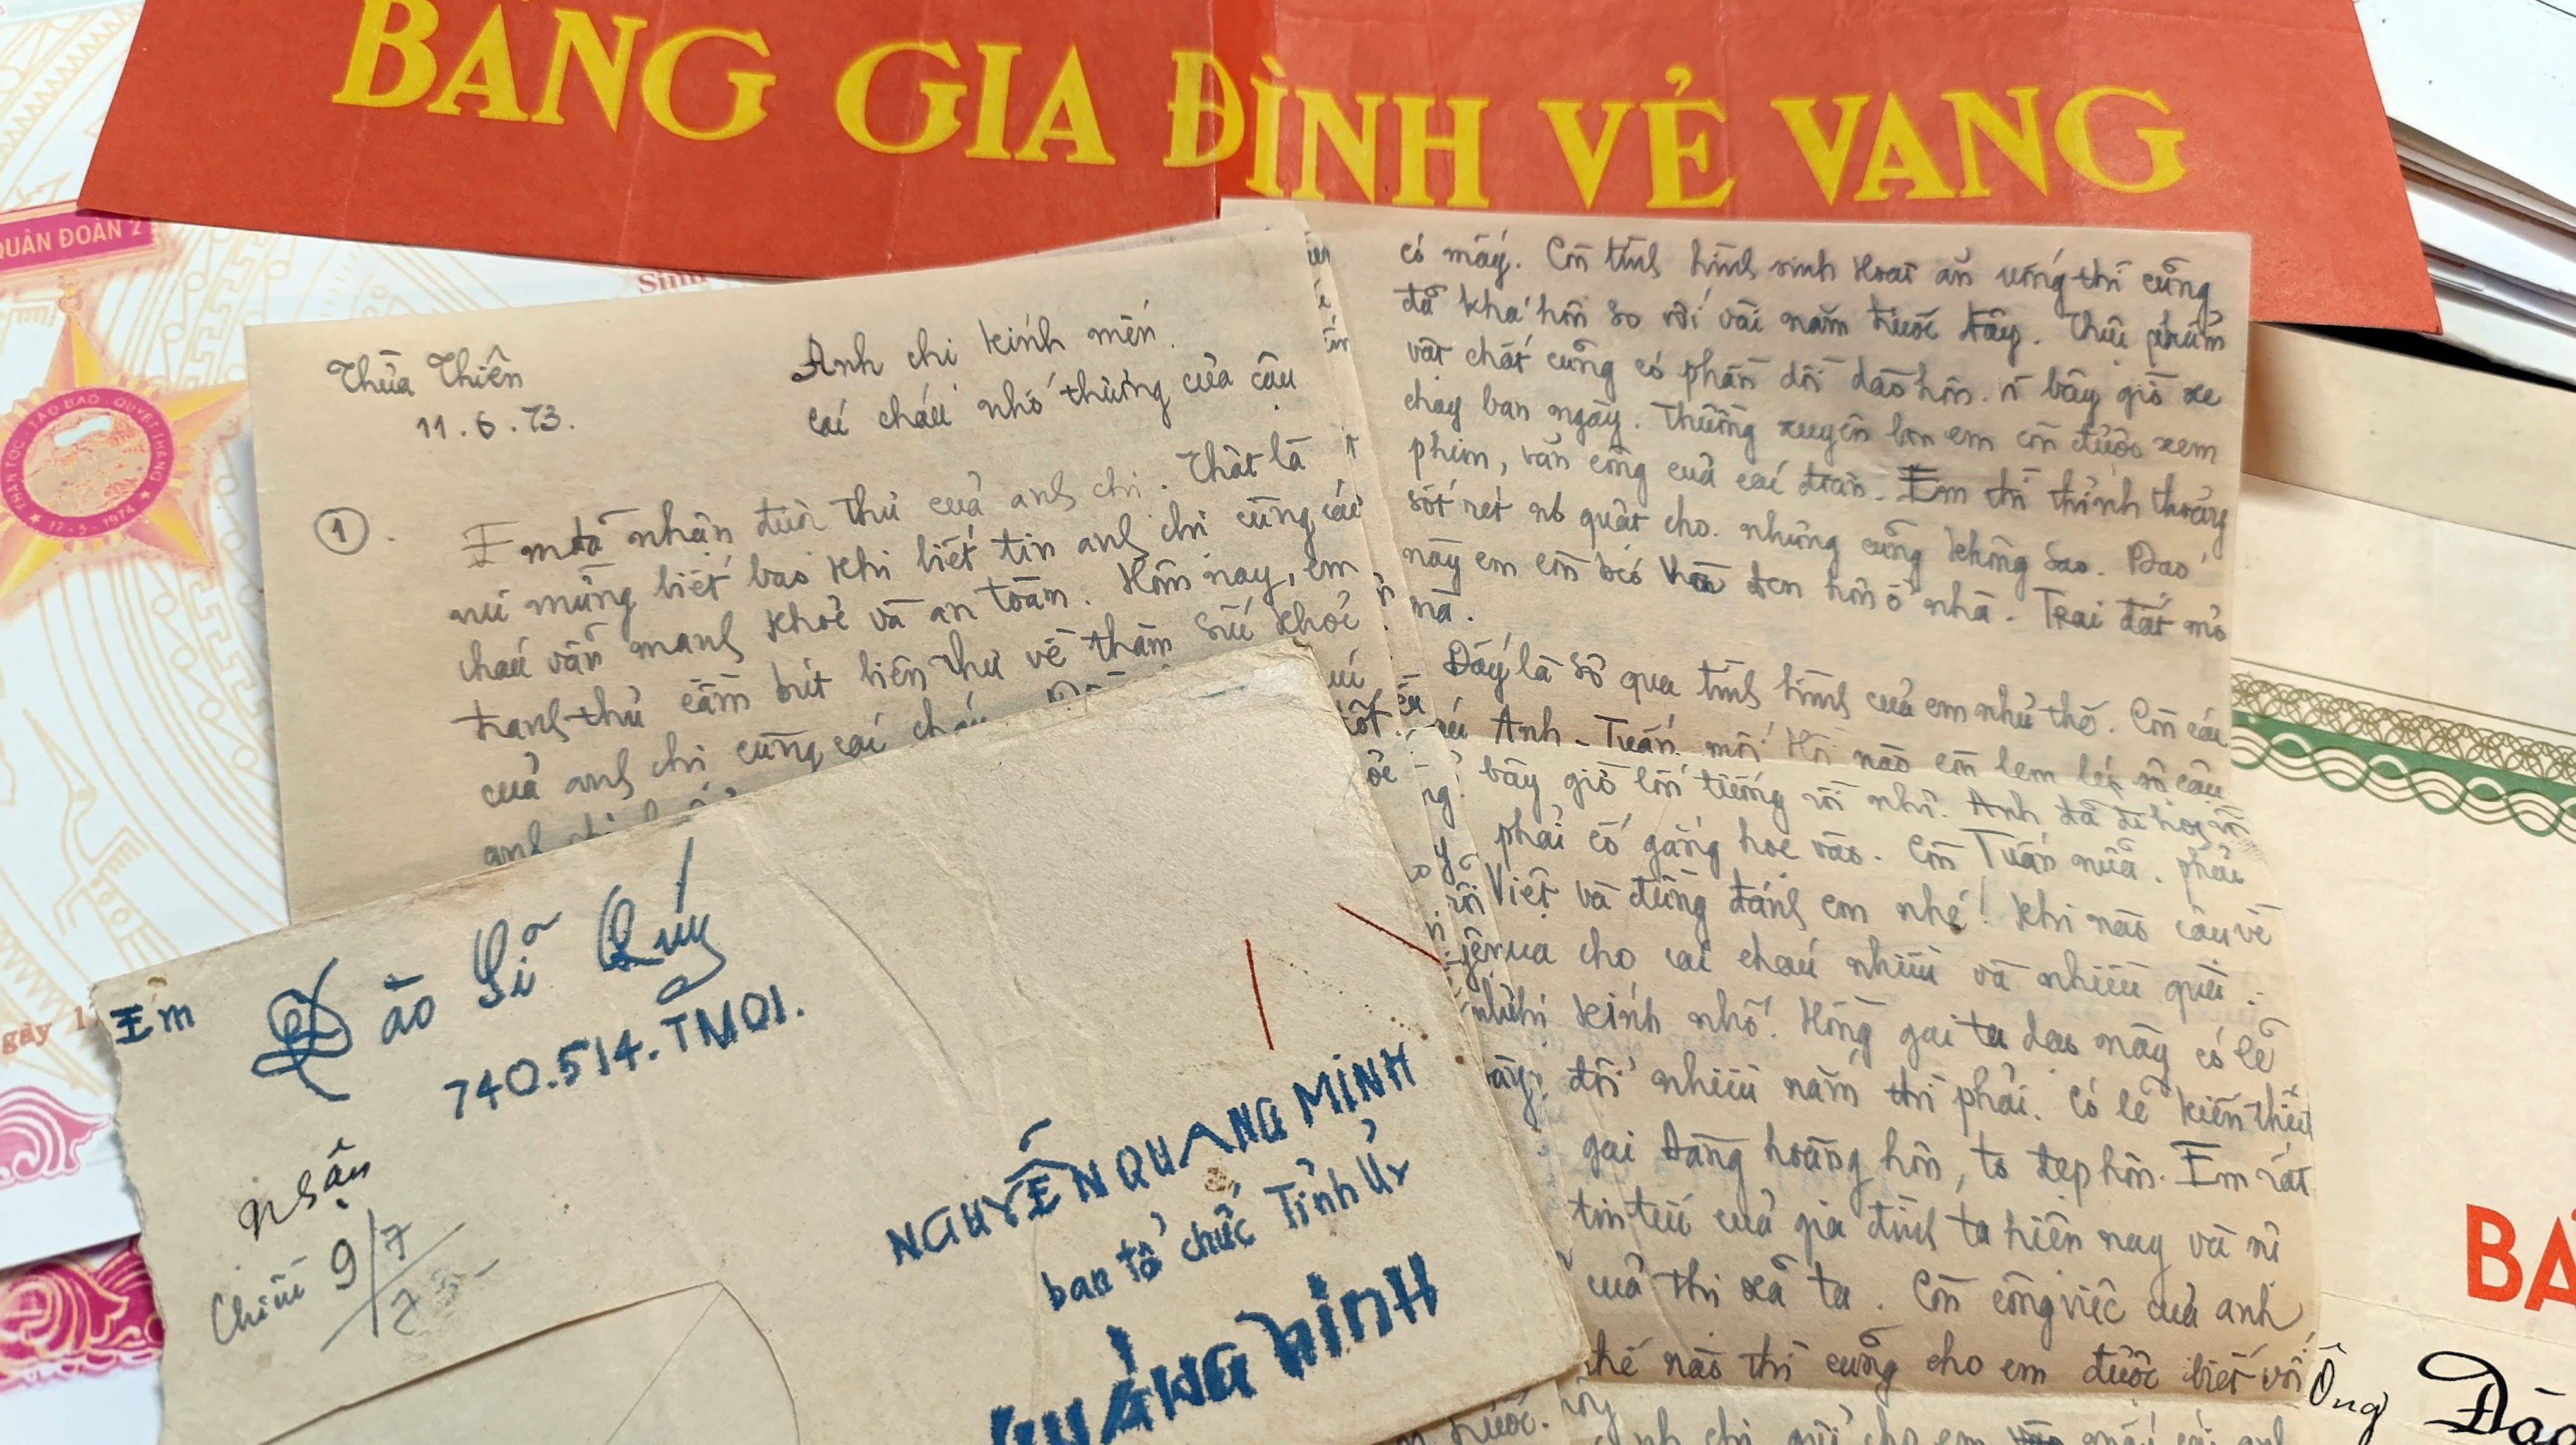 BẢNG GIA ĐÌNH VẺ VANG
QUÂN ĐOÀN 2
THẦN TỐC TÁO BẠO QUYẾT THẮNG
17-5-1974
Thừa Thiên
11.6.73.
Anh chị kính mến.
Các cháu nhớ thương của cậu
1
Em đã nhận được thư của anh chị. Thật là
vui mừng biết bao khi biết tin anh chị cùng các
cháu vẫn mạnh khỏe và an toàn. Hôm nay, em
tranh thủ cầm bút biên thư về thăm sức khỏe
của anh chị cùng các cháu
anh chị
có mấy. Còn tình hình sinh hoạt ăn uống thì cũng
đã khá hơn so với vài năm trước đây. Thực phẩm
vật chất cũng có phần dồi dào hơn. Vì bây giờ xe
chạy ban ngày. Thường xuyên bọn em còn được xem
phim, văn công của các đoàn. Em thì thỉnh thoảng
sốt rét nó quật cho. nhưng cũng không sao. Dạo
này em còn béo và đen hơn ở nhà. Trai đất mỏ
mà.
Đấy là sơ qua tình hình của em như thế. Còn các
Anh - Tuấn. mới Hồi nào còn lem lép sợ cậu
bây giờ lớn tướng rồi nhỉ. Anh đã đi học rồi
phải cố gắng học vào. Còn Tuấn nữa. phải
Việt và đừng đánh em nhé! Khi nào cậu về
mua cho các cháu nhiều và nhiều quà.
kính nhớ! Hồng gai ta dạo này có lẽ
đổi nhiều lắm thì phải. Có lẽ kiến thiết
gai đàng hoàng hơn, to đẹp hơn. Em rất
tin tức của gia đình ta hiện nay và
của thị xã ta. Còn công việc của anh
thế nào thì cũng cho em được biết với
Em Đào Sĩ Quý
740.514.TM01.
Nhận
Chiều 9/7
73
NGUYỄN QUANG MINH
ban tổ chức Tỉnh Ủy
QUẢNG NINH
BẢ
Ông Đào